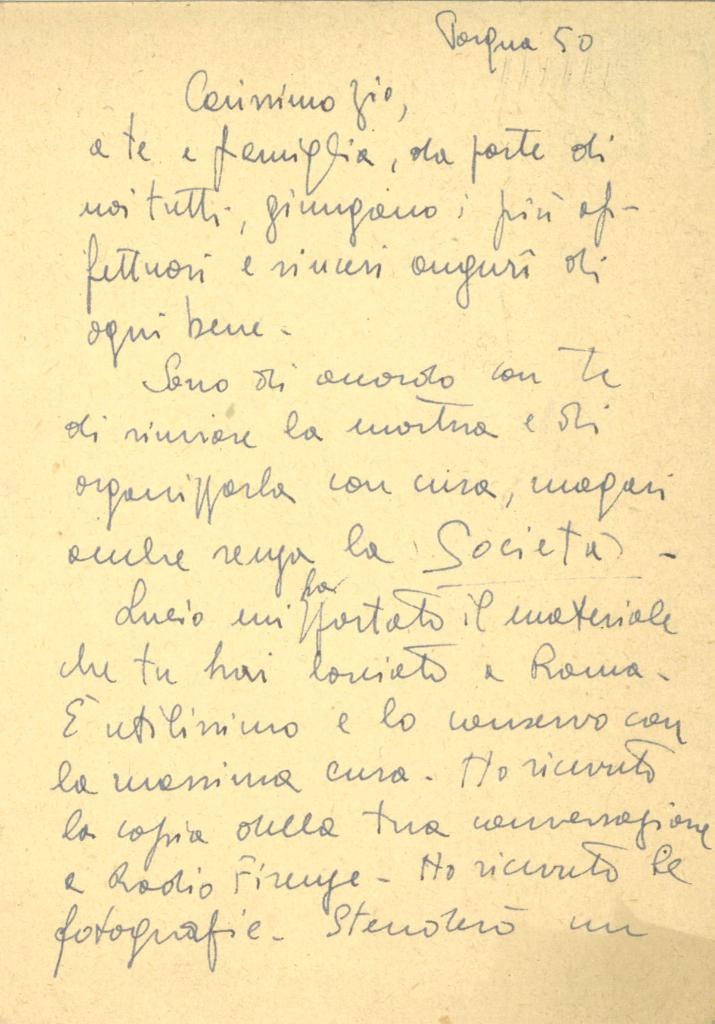 Pasqua 50
Carissimo zio,
a te e famiglia, da parte di
noi tutti, giungano i più af-
fettuosi e sinceri auguri di
ogni bene -
Sono di accordo con te
di rinviare la mostra e di
organizzarla con cura, magari
anche senza la Società -
Lucio mi ha portato il materiale
che tu hai lasciato a Roma -
È utilissimo e lo conservo con
la massima cura - Ho ricevuto
la copia della tua conversazione
a Radio Firenze - Ho ricevuto le
fotografie - Stenderò un